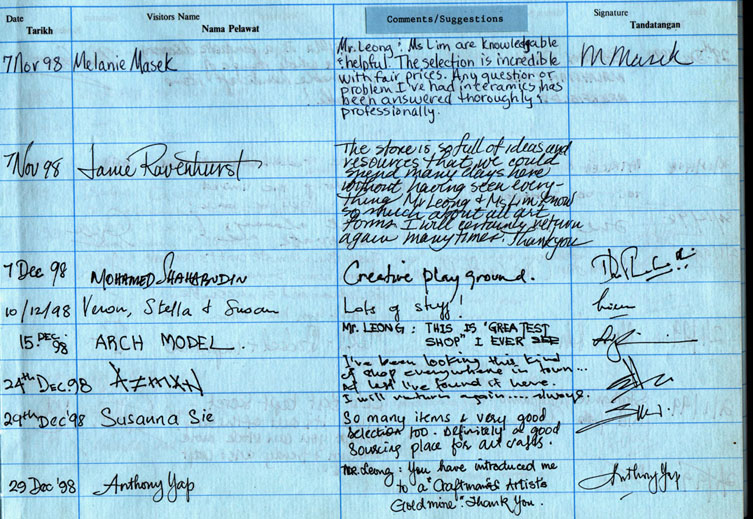 Date Visitors Name Comments/Suggestions Signature
Tarikh Nama Pelawat Tandatangan
7 Nov 98 Melanie Masek Mr. Leong & Ms Lim are knowledgable
& helpful. The selection is incredible
with fair prices. Any question or
problem I've had in ceramics, has
been answered thoroughly &
professionally.
M Masek
7 Nov 98 Jamie Ravenhurst The store is so full of ideas and
resources that we could
spend many days here
without having seen every-
thing Mr Leong & Ms Lim know
so much about all art
forms I will certainly return
again many times. Thankyou
7 Dec 98 MOHAMED SHAHABUDIN Creative play ground.
10/12/98 Veron, Stella & Susan Lots of stuff!
15. DEC. 98 ARCH MODEL. MR. LEONG : THIS IS "GREATEST
SHOP" I EVER SEE
24th Dec 98 I've been looking this kind
of shop everywhere in town...
At last I've found it here.
I will return again.... always.
29th Dec '98 Susanna Sie So many items & very good
selection too. Definitely a good
sourcing place for art crafts.
29 Dec '98 Anthony Yap Mr. Leong : You have introduced me
to a "Craftman's Artist's
Goldmine" Thank You.
Anthony Yap